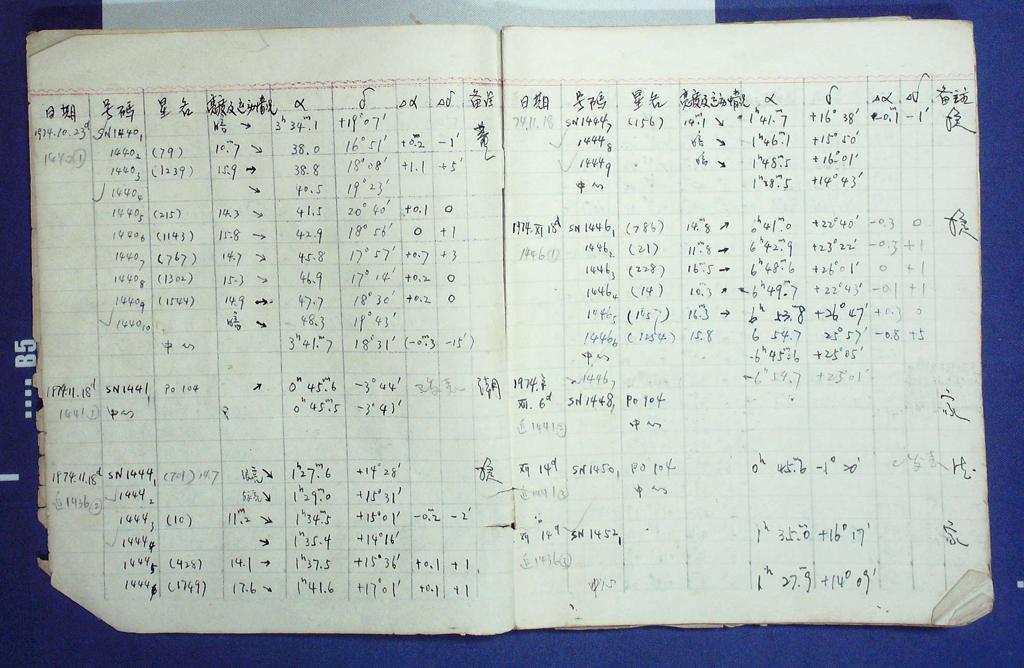 日期 号码 星名 亮度及运动情况 α δ Δα Δδ 备注
1974.10.23d SN1440₁ 暗 ↘ 3h 34m.1 +19°07′ 黄
1440① 1440₂ (79) 10m.7 ↘ 38.0 16°51′ +0.2 -1′
1440₃ (1239) 15.9 → 38.8 18°08′ +1.1 +5′
1440₄ ↘ 40.5 19°23′
1440₅ (215) 14.3 ↘ 41.5 20°40′ +0.1 0
1440₆ (1143) 15.8 → 42.9 18°56′ 0 +1
1440₇ (767) 14.7 ↘ 45.8 17°57′ +0.7 +3
1440₈ (1302) 15.3 ↘ 46.9 17°14′ +0.2 0
1440₉ (1544) 14.9 → 47.7 18°30′ +0.2 0
1440₁₀ 暗 ↘ 48.3 19°43′
中心 3h 41m.7 18°31′ (-0m.3 -15′)
1974.11.18d SN1441₁ PO 104 ↗ 0h 45m.6 -3°44′ 已发表
1441① 中心 0h 45m.5 -3°43′
1974.11.18d SN1444₁ (701) 14.7 很亮 ↘ 1h 27m.6 +14°28′
近1436② 1444₂ 很亮 ↘ 1h 29m.0 +15°31′
1444₃ (10) 11m.2 ↘ 1h 34m.5 +15°01′ -0.2 -2′
1444₄ ↘ 1h 35.4 +14°16′
1444₅ (428) 14.1 → 1h 37.5 +15°36′ +0.1 +1
1444₆ (1749) 17.6 ↘ 1h 41.6 +17°01′ +0.1 +1
日期 号码 星名 亮度及运动情况 α δ Δα Δδ 备注
74.11.18 SN1444₇ (156) 14m.1 ↘ 1h 41.7 +16°38′ -0m.1 -1′
1444₈ 暗 ↘ 1h 46.1 +15°50′
1444₉ 暗 ↘ 1h 48m.5 +16°01′
中心 1h 28m.5 +14°43′
1974.XII 15d SN1446₁ (786) 14m.8 ↗ 6h 41m.0 +22°40′ -0.3 0
1446① 1446₂ (21) 11m.8 → 6h 42m.9 +23°22′ -0.3 +1
1446₃ (228) 16m.5 → 6h 48m.6 +26°01′ 0 +1
1446₄ (14) 10m.3 ↗ 6h 49m.7 +22°43′ -0.1 +1
1446₅ (1457) 16m.3 → 6h 53m.8 +26°47′ +1.3 0
1446₆ (1254) 15.8 6 54.7 25°57′ -0.8 +5
中心 6h 45m.6 +25°05′
1974年 1446₇ 6h 54.7 +23°01′
XII.6d SN1448₁ PO 104
近1441② 中心
XII 14d SN1450₁ PO 104 0h 45m.6 -1°20′ 已发表
近1441③ 中心
XII 14d SN1452₁ 1h 35m.0 +16°17′
近1436③ 中心 1h 27m.9 +14°09′
B5